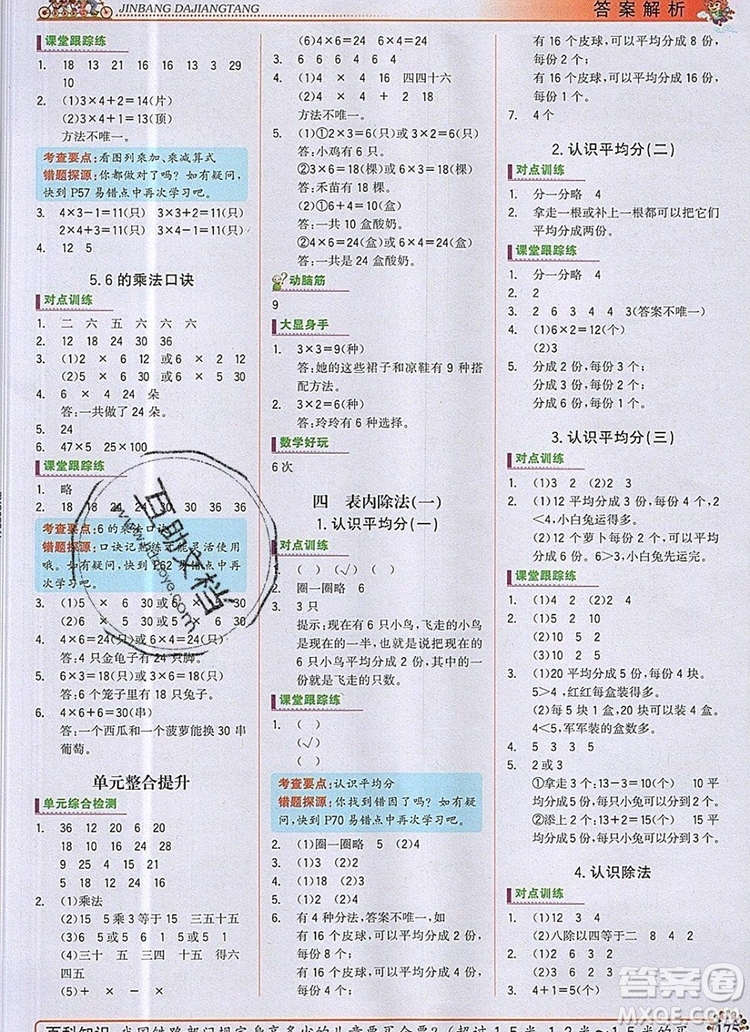 JINBANG DAJIANGTANG
答案解析
课堂跟踪练
1. 18 13 21 16 13 3 29
10
2. (1)3×4+2=14(片)
(2)3×4+1=13(顶)
方法不唯一。
考查要点:看图列乘加、乘减算式
错题探源:你都做对了吗?如有疑问,
快到 P57 易错点中再次学习吧。
3. 4×3-1=11(只) 3×3+2=11(只)
2×4+3=11(只) 4×2+3=11(只)
4. 12 5
5.6的乘法口诀
对点训练
1. 二 六 五 六 六 六
2. 12 18 24 30 36
3. (1)2 × 6 12或6 × 2 12
(2)5 × 6 30或6 × 5 30
4. 6 × 4 24 朵
答:一共做了 24 朵。
5. 24
6. 47×5 25×100
课堂跟踪练
1. 略
2. 18 18 24 24 30 30 36
考查要点:6的乘法口诀
错题探源:口诀记熟练才能灵活使用
哦。如有疑问,快到 P62 易错点中再
次学习吧。
3. (1)5 × 6 30或6 × 5 30
(2)6 × 5 30或5 × 6 30
4. 4×6=24(只)或6×4=24(只)
答:4只金龟子有 24 只脚。
5. 6×3=18(只)或3×6=18(只)
答:6个笼子里有 18 只兔子。
6. 4×6+6=30(串)
答:一个西瓜和一个菠萝能换 30 串
葡萄。
单元整合提升
单元综合检测
1. 36 12 20 6 20 24
9 25 4 15 24 18
5 18 12 24 16 10
2. (1)乘法
(2)15 5乘3等于15 三五十五
(3)5 6 5 6或6 5 6 5
(4)三十 五 三四 十四 得六
四五
(5)1 5或5 1
(6)4×6=24或6×4=24
3. 6 6 4 6 6 4
4. (1)4 × 4 16 四四十六
(2)4 × 4 + 2 18
方法不唯一。
5. (1)①2×3=6(只)或3×2=6(只)
答:小鸡有6只。
②3×6=18(棵)或6×3=18(棵)
答:禾苗有 18 棵。
(2)①6+4=10(盒)
答:一共 10 盒酸奶。
②4×6=24(盒)或6×4=24(盒)
答:一共 24 盒酸奶。
动脑筋
9
大显身手
1. 3×3=9(种)
答:她的这些裙子和凉鞋有9种搭
配方法。
2. 3×2=6(种)
答:玲玲有6种选择。
数学好玩
6次
四 表内除法(一)
1.认识平均分(一)
对点训练
1. ( ) ( ) (√)
2. 圈一圈略 6
3. 3只
提示:现在有6只小鸟,飞走的小鸟
是现在的一半,也就是飞走的是现
在的6只小鸟平均分成2份,其中的一
份就是飞走的只数。
课堂跟踪练
1. ( )
(√)
( )
考查要点:认识平均分
错题探源:你找到错因了吗?如有疑
问,快到 P70 易错点中再次学习吧。
2. (1)圈一圈略 5 (2)圈一圈略 4
3. (1)3 (2)2
4. (1)18 (2)3
5. (1)4 (2)3
6. 有4种分法,答案不唯一,如
有16个皮球,可以平均分成2份,
每份8个;
有16个皮球,可以平均分成4份,
每份4个;
有16个皮球,可以平均分成8份,
每份2个;
有16个皮球,可以平均分成1份,
每份16个
7. 4个
2.认识平均分(二)
对点训练
1. 分一分略 4
2. 拿走一根或补上一根都可以把它
们平均分成两份。
课堂跟踪练
1. 分一分略 4
2. 2
3. 2 6 3 4 4 3(答案不唯一)
4. (1)6×2=12
(2)3
5. 分成2份,每份3个;
分成3份,每份2个;
分成6份,每份1个;
分成1份,每份6个。
3.认识平均分(三)
对点训练
1. (1)3 6 (2)6 3
2. (1)12个白菜平均分成6份,每份2个,
2<4,小灰兔先运完。
(2)12个萝卜每份2个,可以分成
6份,4<6,小白兔先运完。
课堂跟踪练
1. (1)4 (2)2 (3)4 (4)2
2. (1)5 12
(2)10 5
(3)2 12
3. (1)20平均分成5份,每份4个,
5>4,红红得的多。
(2)每5块1盒,可以分成4盒,
4<5,军军装的盒数多。
4. 5 3 5 3
5. 2或3
①拿走3个:13-3=10(个) 10平
均分成5份,每只小兔可以分到2个。
②添上2个:13+2=15(个) 15平
均分成5份,每只小兔可以分到3个。
4.认识除法
对点训练
1. (1)12 3 4 (2)2 2 2
(3)9 3 3
2. (1)12 (2)八除以四等于二 8 4 2
3. (1)20 4 5 (2)20 4 5
4. 6÷1=6
答案圈
MXQE.COM